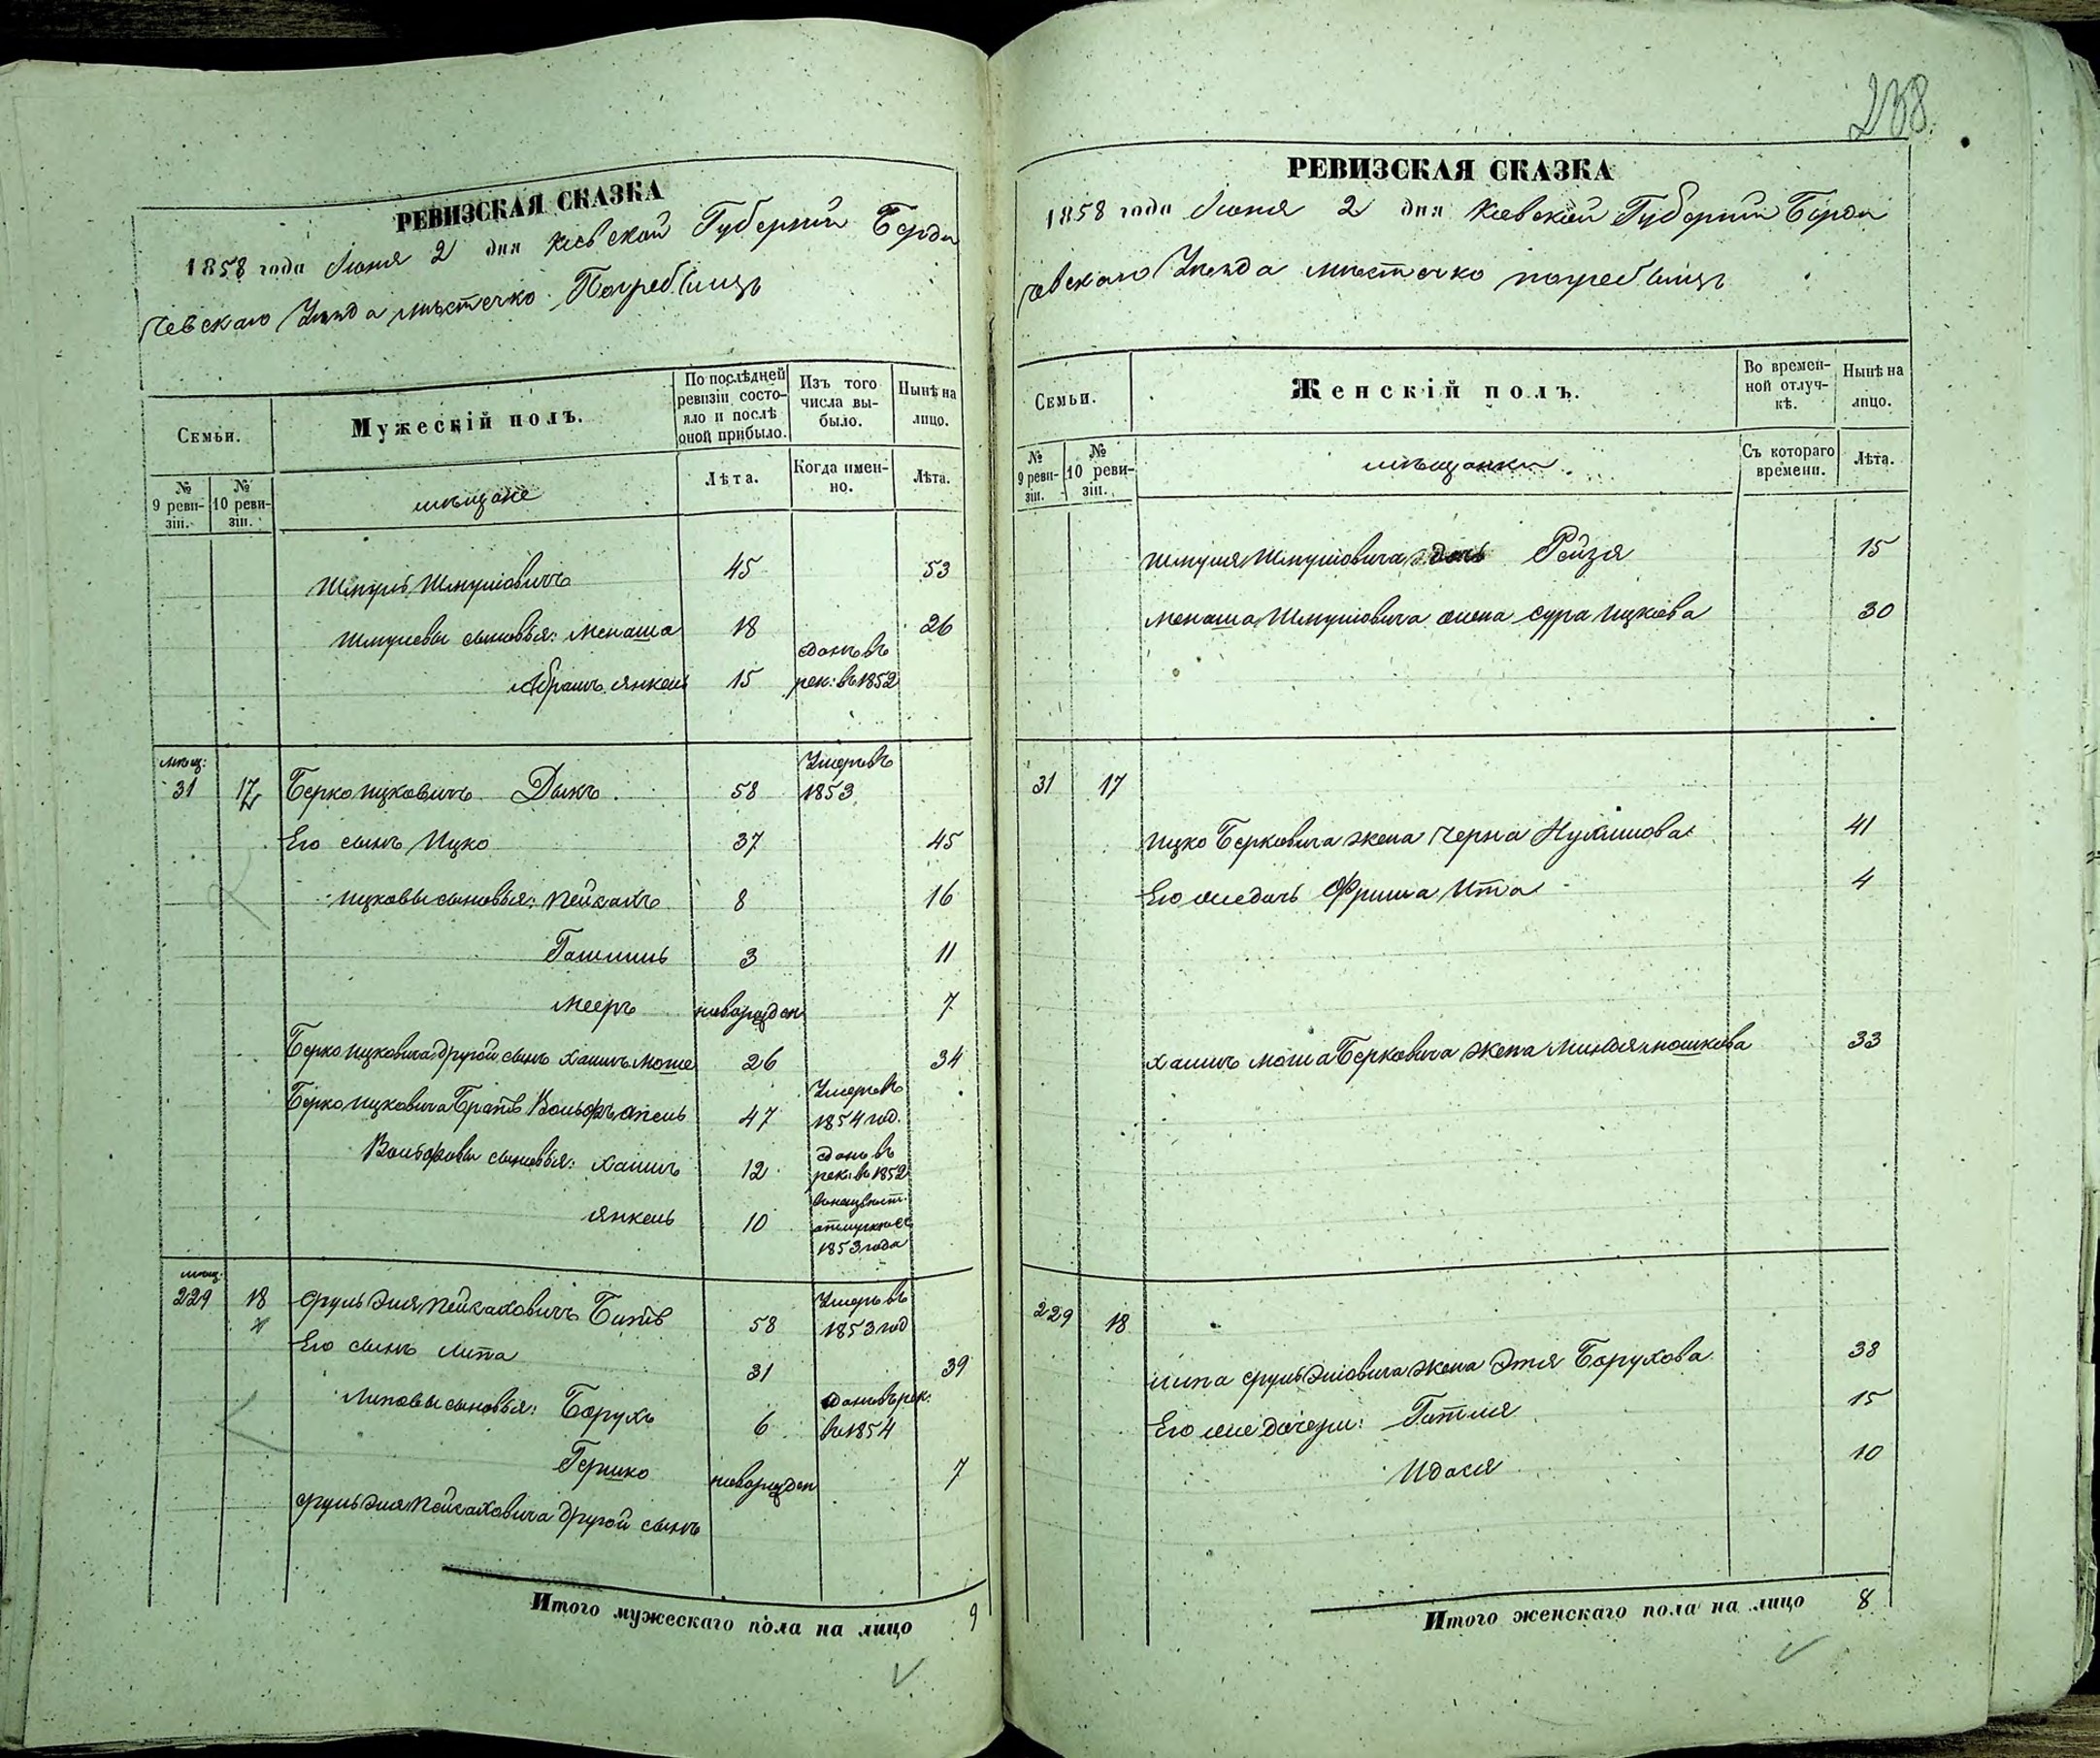 РЕВИЗСКАЯ СКАЗКА
1858 года Июня 2 дня Киевской Губерніи Берди
чевскаго Уѣзда мѣстечко Погребищъ
Семьи.
Мужескій полъ.
По послѣдней ревизіи состояло и послѣ оной прибыло.
Изъ того числа выбыло.
Нынѣ на лицо.
№ 9 ревизіи.
№ 10 ревизіи.
мѣщане
Лѣта.
Когда именно.
Лѣта.
Шмуль Шмулiовичъ 45 53
Шмулевы сыновья: Менаша 18 26
Абрамъ Янкель 15 сданъ въ рек: въ 1852
мѣщ:
31 17 Берко Ицковичъ Дыкъ 58 Умеръ въ 1853
Его сынъ Ицко 37 45
Ицковы сыновья: Пейсахъ 8 16
3 11
Мееръ новорожден 7
Берко Ицковича другой сынъ Хаимъ Моше 26 34
Берко Ицковича Братъ Вольфъ 47 Умеръ въ 1854 год.
Вольфовы сыновья: Хаимъ 12 сданъ въ рек: въ 1852
Янкель 10 отлучкѣ съ 1853 года
мѣщ:
229 18 Сруль Эля Пейсаховичъ 58 Умеръ въ 1853 год
Его сынъ Липа 31 39
Липовы сыновья: Борухъ 6 сданъ въ рек: въ 1854
Гершко новорожден 7
Сруль Эля Пейсаховича другой сынъ
Итого мужескаго пола на лицо 9
РЕВИЗСКАЯ СКАЗКА
1858 года Июня 2 дня Киевской Губерніи Берди
чевскаго Уѣзда мѣстечко Погребищъ
Семьи.
Женскій полъ.
Во временной отлучкѣ.
Нынѣ на лицо.
№ 9 ревизіи.
№ 10 ревизіи.
мѣщанки
Съ котораго времени.
Лѣта.
Шмуля Шмулiовича дочь Рейзя 15
Менаша Шмулiовича жена Сура Ицкова 30
31 17
Ицко Берковича жена Черна 41
Его же дочь Ита 4
Хаимъ Моша Берковича жена Миндля Мошкова 33
229 18
Липа Сруль Элiовича жена Этя Борухова 38
Его же дочери: Гитля 15
Идася 10
Итого женскаго пола на лицо 8